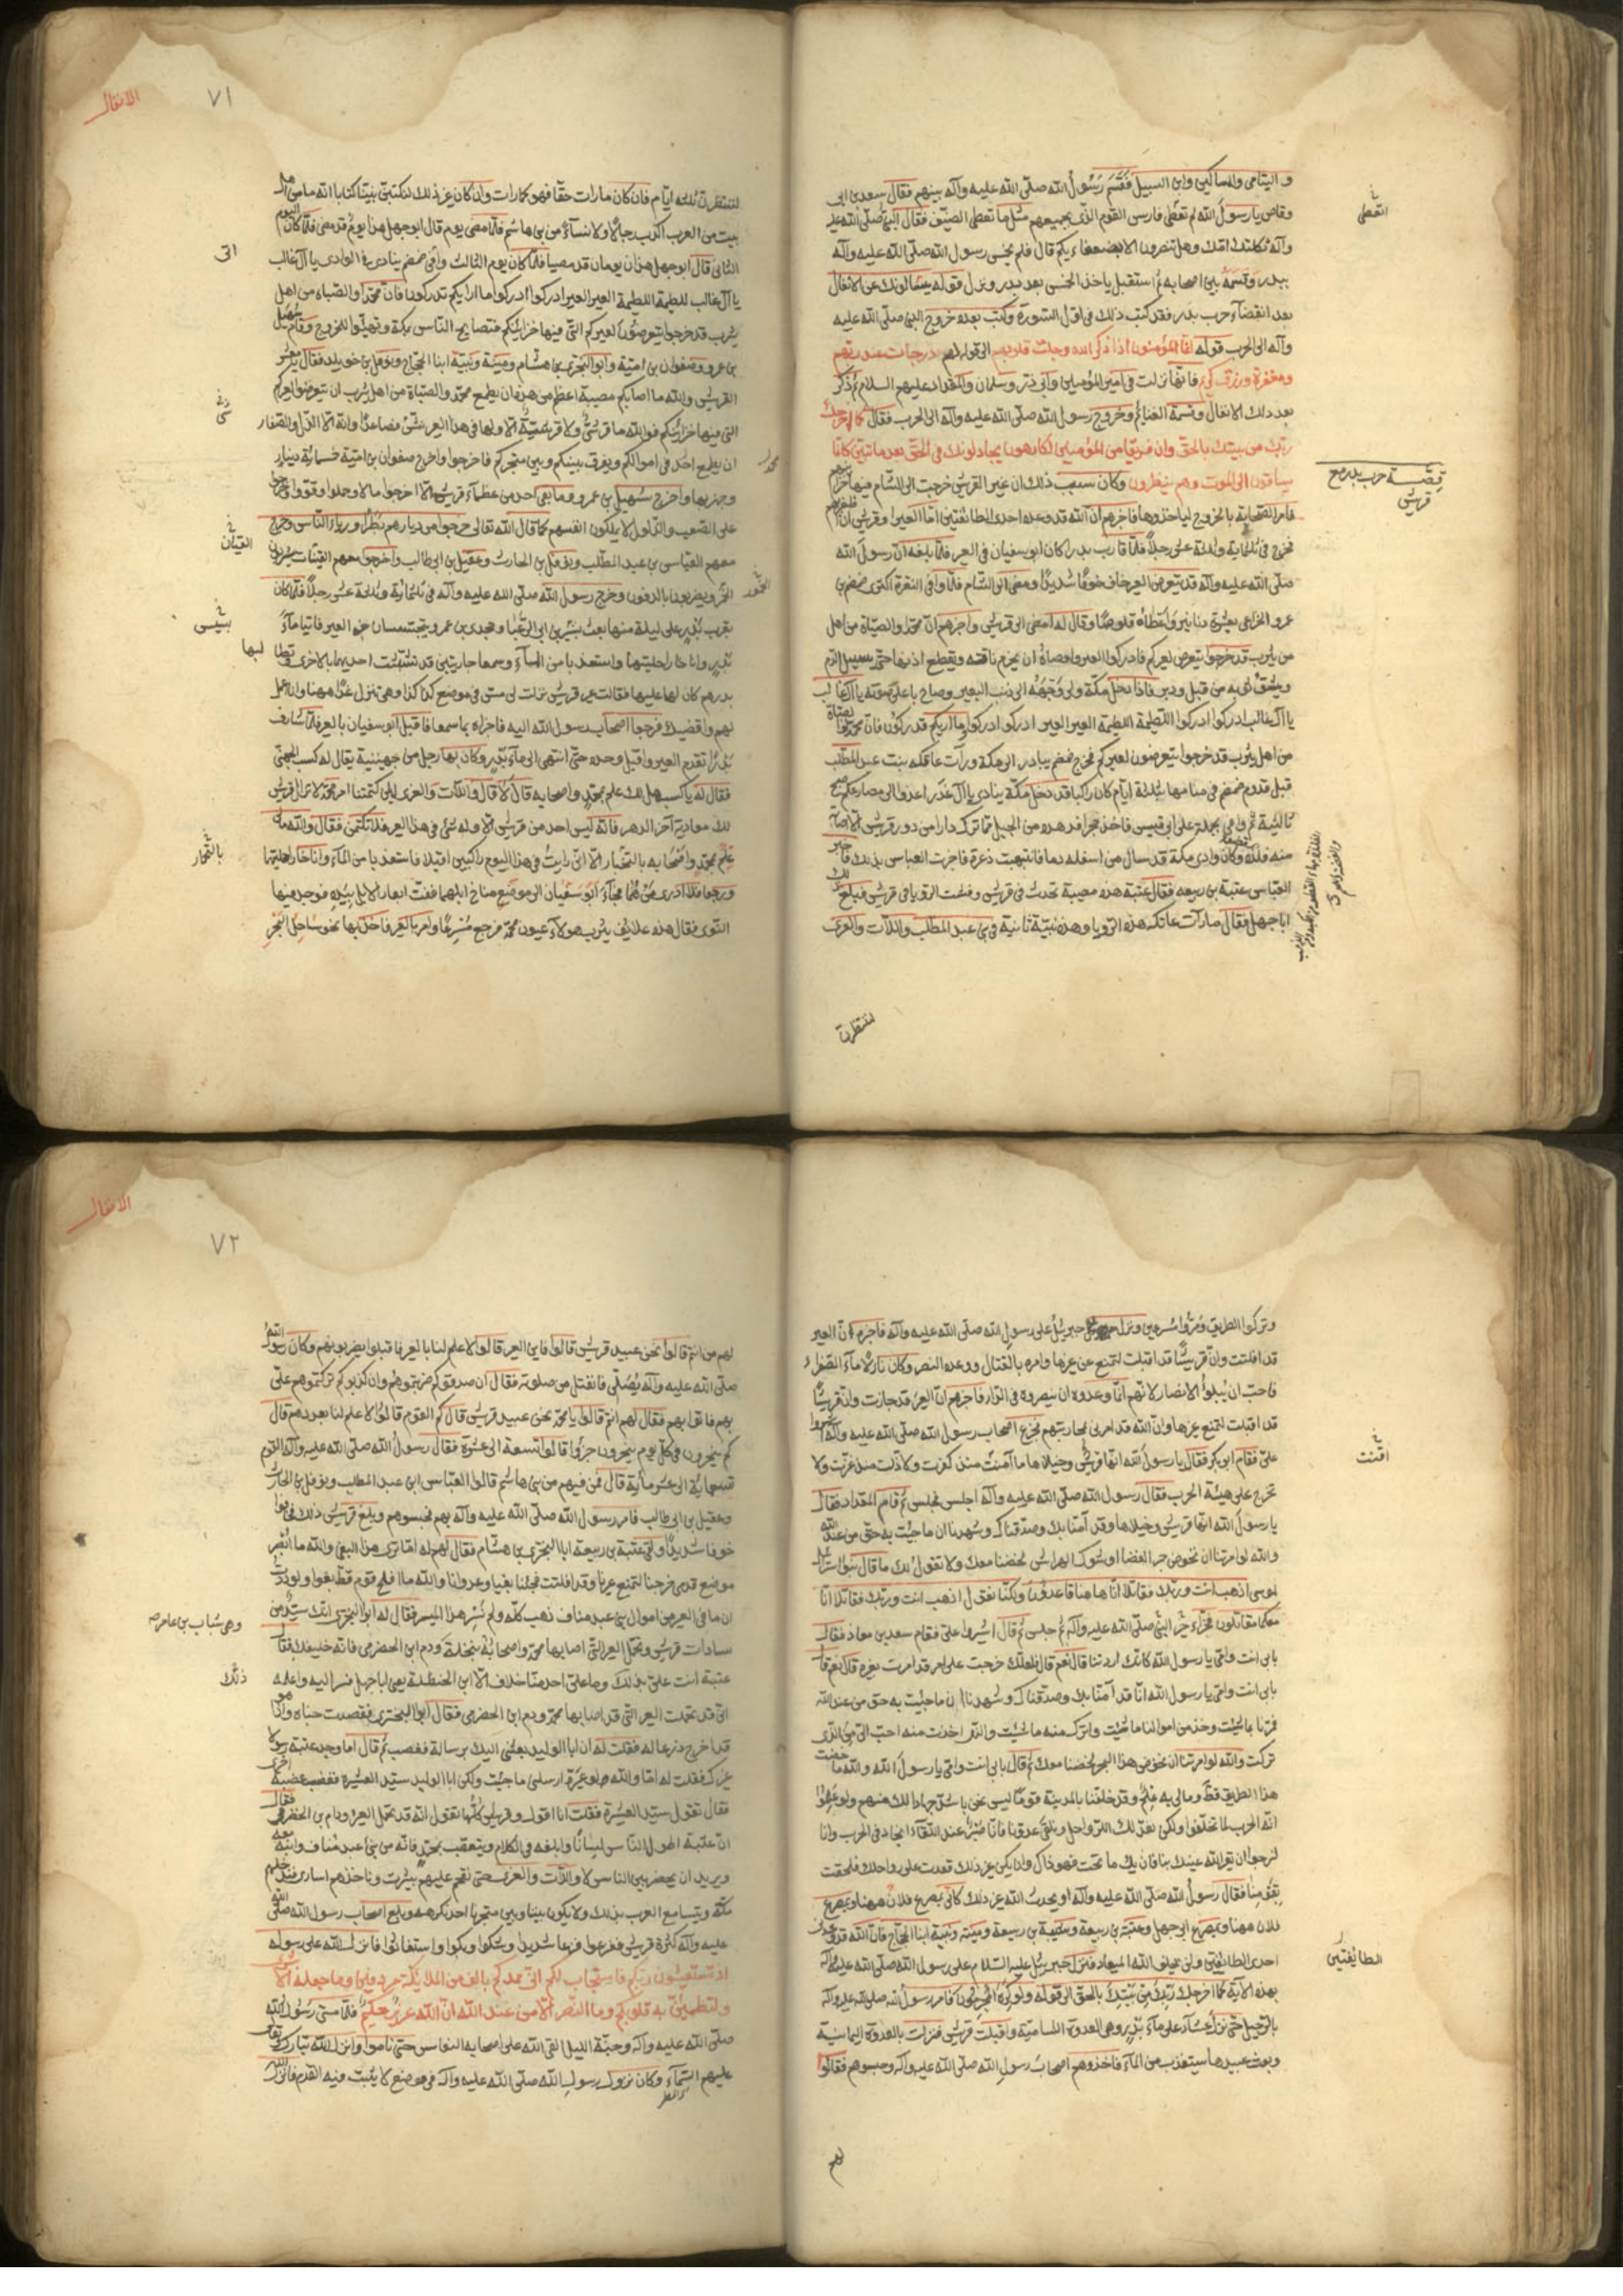 واليتامى والمساكين وابن السبيل فقسم رسول الله صلّى الله عليه وآله بينهم فقال سعد بن ابى
وقاص يا رسول الله لم تعطى فارس القوم الذى يحميهم مثل ما تعطى الضعيف فقال النبى صلّى الله عليه
وآله ثكلتك امّك وهل تنصرون الا بضعفاءكم قال فلم يخمس رسول الله صلّى الله عليه وآله
ببدر وقسمه بين اصحابه ثم استقبل ياخذ الخمس بعد بدر ونزل قوله يسئلونك عن الانفال
بعد انقضاء حرب بدر فقد كتب ذلك فى اول السورة وكتب بعده خروج النبى صلّى الله عليه
وآله الى الحرب قوله انّما المؤمنون اذا ذكر الله وجلت قلوبهم الى قوله لهم درجات عند ربّهم
ومغفرة ورزق كريم فانّها نزلت فى امير المؤمنين وابى ذر وسلمان والمقداد عليهم السلام ثم ذكر
بعد ذلك الانفال وقسمة الغنائم وخروج رسول الله صلّى الله عليه وآله الى الحرب فقال كما اخرجك
ربّك من بيتك بالحقّ وان فريقا من المؤمنين لكارهون يجادلونك فى الحقّ بعد ما تبيّن كانّما
يساقون الى الموت وهم ينظرون وكان سبب ذلك ان عير القريش خرجت الى الشام فيها خزائنهم
فامر اصحابه بالخروج لياخذوها فاخبرهم ان الله قد وعده احدى الطائفتين امّا العير او قريش ان ظفر بهم
فخرج فى ثلثمائة وثلثة عشر رجلا فلما قارب بدر كان ابو سفيان فى العير فلما بلغه ان رسول الله
صلّى الله عليه وآله قد يتعرض العير خاف خوفا شديدا ومضى الى الشام فلما وافى النقرة اكترى ضمضم بن
عمرو الخزاعى بعشرة دنانير واعطاه قلوصا وقال له امض الى قريش واخبرهم ان محمدا والصباة من اهل
من يثرب قد خرجوا يتعرض لعيركم فادركوا العير واوصاه ان يخرم ناقته ويقطع اذنها حتى يسيل الدم
ويشق ثوبه من قبل ودبر فاذا دخل مكة ولى وجهه الى ذنب البعير وصاح باعلى صوته يا آل غالب
يا آل غالب ادركوا ادركوا اللطيمة اللطيمة العير العير ادركوا ادركوا وما اريكم تدركون فان محمدا والصباة
من اهل يثرب قد خرجوا يتعرضون لعيركم فخرج ضمضم يبادر الى مكة ورات عاتكه بنت عبد المطلب
قبل قدوم ضمضم فى منامها بثلثة ايّام كان راكبا قد دخل مكة ينادى يا آل غدر اعدوا الى مصارعكم
ثالثة ثم وافى بجمله على ابى قبيس فاخذ حجرا فدهده من الجبل فما ترك دارا من دور قريش الا اصابه
منه فلذة وكان وادى مكة قد سال من اسفله دما فانتبهت ذعرة فاخبرت العباس بذلك فاخبر
العباس عتبة بن ربيعه فقال عتبة هذه مصيبة تحدث فى قريش وفشت الرؤيا فى قريش فبلغ ذلك
ابا جهل فقال ما رات عاتكه هذه الرؤيا وهذه نبيّة ثانية فى بنى عبد المطلب واللات والعزى
لننتظرن
اتعطى
قصّة حرب بدر مع
قريش
الانفال
٧١
لننتظرن ثلثه ايّام فان كان ما رات حقّا فهو كما رات وان كان غير ذلك لنكتبن بيننا كتابا انه ما من اهل
بيت من العرب اكذب رجالا ولا نساء من بنى هاشم فلما مضى يوم قال ابو جهل هذا يوم قد مضى فلما كان اليوم
الثانى قال ابو جهل هذان يومان قد مضيا فلما كان يوم الثالث وافى ضمضم ينادى فى الوادى يا آل غالب
يا آل غالب اللطيمة اللطيمة العير العير ادركوا ادركوا وما اراكم تدركون فان محمدا والصباه من اهل
يثرب قد خرجوا يتعرضون لعيركم التى فيها خزائنكم فتصايح الناس بمكة وتهيّئوا للخروج وقام سهيل
بن عمرو وصفوان بن امية وابو البخترى بن هشام ومنبه ونبيه ابنا الحجاج ونوفل بن خويلد فقال يا معشر
القريش والله ما اصابكم مصيبة اعظم من هذه ان يطمع محمد والصباة من اهل يثرب ان يتعرضوا لعيركم
التى فيها خزائنكم فوالله ما قرشى ولا قرشية الا ولها فى هذا العير نش فصاعدا وانه الا الذل والصغار
ان يطمع محمد فى اموالكم ويفرق بينكم وبين متجركم فاخرجوا واخرج صفوان بن امية خمسمائة دينار
وجهز بها واخرج سهيل بن عمرو وما بقى احد من عظماء قريش الا اخرجوا مالا وحملوا وقوّوا وخرجوا
على الصعب والذلول لا يملكون انفسهم كما قال الله تعالى خرجوا من ديارهم بطرا ورياء الناس وخرج
معهم العباس بن عبد المطلب ونوفل بن الحارث وعقيل بن ابى طالب واخرجوا معهم القينات يشربون
الخمر ويضربون بالدفوف وخرج رسول الله صلّى الله عليه وآله فى ثلثمائة وثلثة عشر رجلا فلما كان
بقرب بدر على ليلة منها بعث بشير بن ابى الرعبا ومجدى بن عمرو يتجسسان خبر العير فاتيا ماء
بدر واناخا راحلتيهما واستعذبا من الماء وسمعا جاريتين قد تشبثت احديهما بالاخرى وتطالبها
بدرهم كان لها عليها فقالت عير قريش نزلت امس فى موضع كذا كذا وهى تنزل غدا ههنا وانا اعمل
لهم واقضيك فرجعا اصحاب رسول الله اليه فاخبراه بما سمعا فاقبل ابو سفيان بالعير فلما شارف
بدرا تقدم العير واقبل وحده حتى انتهى الى ماء بدر وكان بها رجل من جهينة يقال له كسب الجهنى
فقال له يا كسب هل لك علم بمحمد واصحابه قال لا قال واللات والعزى لئن كتمتنا امر محمد لا تزال قريش
لك معادية آخر الدهر فانه ليس احد من قريش الا وله شئ فى هذا العير فلا تكتمنى فقال والله ما لى
علم بمحمد واصحابه بالتخبار الا انى رايت فى هذا اليوم راكبين اقبلا فاستعذبا من الماء واناخا راحلتيهما
ورجعا فلا ادرى من هما فجاء ابو سفيان الى موضع مناخ ابلهما ففت ابعار الابل بيده فوجد فيها
النوى فقال هذه علائف يثرب هولاء عيون محمد فرجع مسرعا وامر بالعير فاخذ بها نحو ساحل البحر
القيان
الخمور
بالتجار
وتركوا الطريق ومرّوا مسرعين ونزل جبرئيل على رسول الله صلّى الله عليه وآله فاخبره ان العير
قد افلتت وان قريشا قد اقبلت لتمنع عن عيرها وامره بالقتال ووعده النصر وكان نازلا ماء الصفراء
فاحبّ ان يبلوا الانصار لانهم انما وعدوه ان ينصروه فى الدار فاخبرهم ان العير قد جازت وان قريشا
قد اقبلت لتمنع عيرها وان الله قد امرنى بمحاربتهم فجزع اصحاب رسول الله صلّى الله عليه وآله اشيروا
علىّ فقام ابو بكر فقال يا رسول الله انها قريش وخيلاها ما آمنت منذ كفرت ولا ذلت منذ عزت ولا
تخرج على هيئة الحرب فقال رسول الله صلّى الله عليه وآله اجلس فجلس ثم قام المقداد فقال
يا رسول الله انها قريش وخيلاها وقد آمنا بك وصدقناك وشهدنا ان ما جئت به حق من عند الله
والله لو امرتنا ان نخوض جمر الغضا او شوك الهراس لخضنا معك ولا نقول لك ما قال بنو اسرائيل
لموسى اذهب انت وربك فقاتلا انا ههنا قاعدون ولكنا نقول اذهب انت وربك فقاتلا انا
معكما مقاتلون فجزاه خيرا النبى صلّى الله عليه وآله ثم جلس ثم قال اشيروا على فقام سعد بن معاذ فقال
بابى انت وامى يا رسول الله كانك اردتنا قال نعم قال فلعلك خرجت على امر قد امرت بغيره قال نعم قال
بابى انت وامى يا رسول الله انا قد آمنا بك وصدقناك وشهدنا ان ما جئت به حق من عند الله
فمرنا بما شئت وخذ من اموالنا ما شئت واترك منه ما شئت والذى اخذت منه احب الى من الذى
تركت والله لو امرتنا ان نخوض هذا البحر لخضنا معك ثم قال بابى انت وامى يا رسول الله والله ما خضت
هذا الطريق قط وما لى به علم وقد خلفنا بالمدينة قوما ليس نحن باشد جهادا لك منهم ولو علموا
انه الحرب لما تخلفوا ولكن نعد لك الرواحل ونلقى عدونا فانا صبر عند اللقاء انجاد فى الحرب وانا
لنرجو ان يقر الله عينك بنا فان يك ما تحب فهو ذاك وان يكن غير ذلك قعدت على رواحلك فلحقت
بقومنا فقال رسول الله صلّى الله عليه وآله او يحدث الله غير ذلك كانى بمصرع فلان ههنا وبمصرع
فلان ههنا وبمصرع ابو جهل وعتبة بن ربيعة وشيبة بن ربيعة ومنبه ونبيه ابنا الحجاج فان الله قد وعدنى
احدى الطائفتين ولن يخلف الله الميعاد فنزل جبرئيل عليه السلام على رسول الله صلّى الله عليه وآله
بهذه الآية كما اخرجك ربك من بيتك بالحق الى قوله ولو كره المجرمون فامر رسول الله صلى الله عليه وآله
بالرحيل حتى نزل عشاء على ماء بدر وهى العدوة الشامية واقبلت قريش فنزلت بالعدوة اليمانية
وبعث عبيدها تستعذب من الماء فاخذوهم اصحاب رسول الله صلّى الله عليه وآله وحبسوهم فقالوا
لهم
الطائفتين
الانفال
٧٢
لهم من انتم قالوا نحن عبيد قريش قالوا فاين العير قالوا لا علم لنا بالعير فاقبلوا يضربونهم وكان رسول الله
صلّى الله عليه وآله يصلّى فانفتل من صلوته فقال ان صدقوكم ضربتموهم وان كذبوكم تركتموهم علىّ
بهم فاتوا بهم فقال لهم من انتم قالوا يا محمد نحن عبيد قريش قال كم القوم قالوا لا علم لنا بعددهم قال
كم ينحرون فى كل يوم ينحرون جزوا قالوا تسعة الى عشرة فقال رسول الله صلّى الله عليه وآله القوم
تسعمائة الى عشر مائة قال فمن فيهم من بنى هاشم قالوا العباس ابن عبد المطلب ونوفل بن الحارث
وعقيل بن ابى طالب فامر رسول الله صلّى الله عليه وآله بهم فحبسوهم وبلغ قريش ذلك فخافوا
خوفا شديدا ولقى عتبة بن ربيعة ابا البخترى بن هشام فقال لهم له اما ترى هذا البغى والله ما ابصر
موضع قدمى خرجنا لنمنع عيرنا وقد افلتت فجئنا بغيا وعدوانا والله ما افلح قوم قط بغوا ولوددت
ان ما فى العير من اموال بنى عبد مناف ذهب كله ولم نسر هذا المسير فقال له ابو البخترى انك سيد من
سادات قريش وتحمل العير التى اصابها محمد واصحابه بنخلة ودم ابن الحضرمى فانه حليفك فقال
عتبة انت علىّ بذلك وما على احد منا خلاف الا ابن الحنظلة يعنى ابا جهل فسر اليه واعلمه
انى قد تحملت العير التى قد اصابها محمد ودم ابن الحضرمى فقال ابو البخترى فقصدت خباه واذا هو
قد اخرج درعا له فقلت له ان ابا الوليد بعثنى اليك برسالة فغضب ثم قال اما وجد عتبة رسولا
غيرك فقلت له اما والله لو غيره ارسلنى ما جئت ولكن ابا الوليد سيد العشيرة فغضب غضبة اخرى
فقال تقول سيد العشيرة فقلت انا اقوله وقريش كلها تقول انه قد تحمل العير ودم بن الحضرمى فقال
ان عتبة اطول الناس لسانا وابلغه فى الكلام ويتعصب بمحمد فانه من بنى عبد مناف وابنه معه
ويريد ان يحضر بين الناس لا واللات والعزى حتى نقحم عليهم بيثرب وناخذهم اسارى فندخلهم
مكة ويتسامع العرب بذلك ولا يكون بيننا وبين متجرنا احد نكرهه وبلغ اصحاب رسول الله صلّى الله
عليه وآله كثرة قريش ففزعوا فزعا شديدا وشكوا وبكوا واستغاثوا فانزل الله على رسوله
اذ تستغيثون ربّكم فاستجاب لكم انّى ممدّكم بالف من الملائكة مردفين وما جعله الله الا بشرى
ولتطمئنّ به قلوبكم وما النصر الّا من عند الله انّ الله عزيز حكيم فلما مسى رسول الله
صلّى الله عليه وآله وجنّه الليل القى الله على اصحابه النعاس حتى ناموا وانزل الله تبارك وتعالى
عليهم السماء وكان نزول رسول الله صلّى الله عليه وآله فى موضع لا يثبت فيه القدم فانزل الله
ذلك